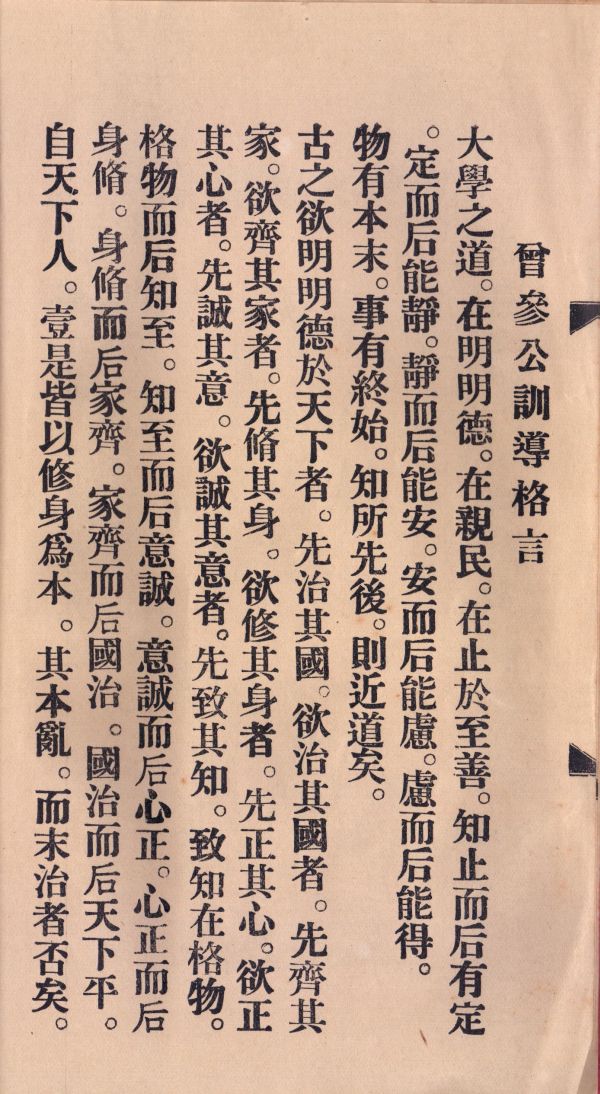 曾參公訓導格言
大學之道。在明明德。在親民。在止於至善。知止而后有定
。定而后能靜。靜而后能安。安而后能慮。慮而后能得。
物有本末。事有終始。知所先後。則近道矣。
古之欲明明德於天下者。先治其國。欲治其國者。先齊其
家。欲齊其家者。先脩其身。欲修其身者。先正其心。欲正
其心者。先誠其意。欲誠其意者。先致其知。致知在格物。
格物而后知至。知至而后意誠。意誠而后心正。心正而后
身脩。身脩而后家齊。家齊而后國治。國治而后天下平。
自天下人。壹是皆以修身爲本。其本亂。而末治者否矣。